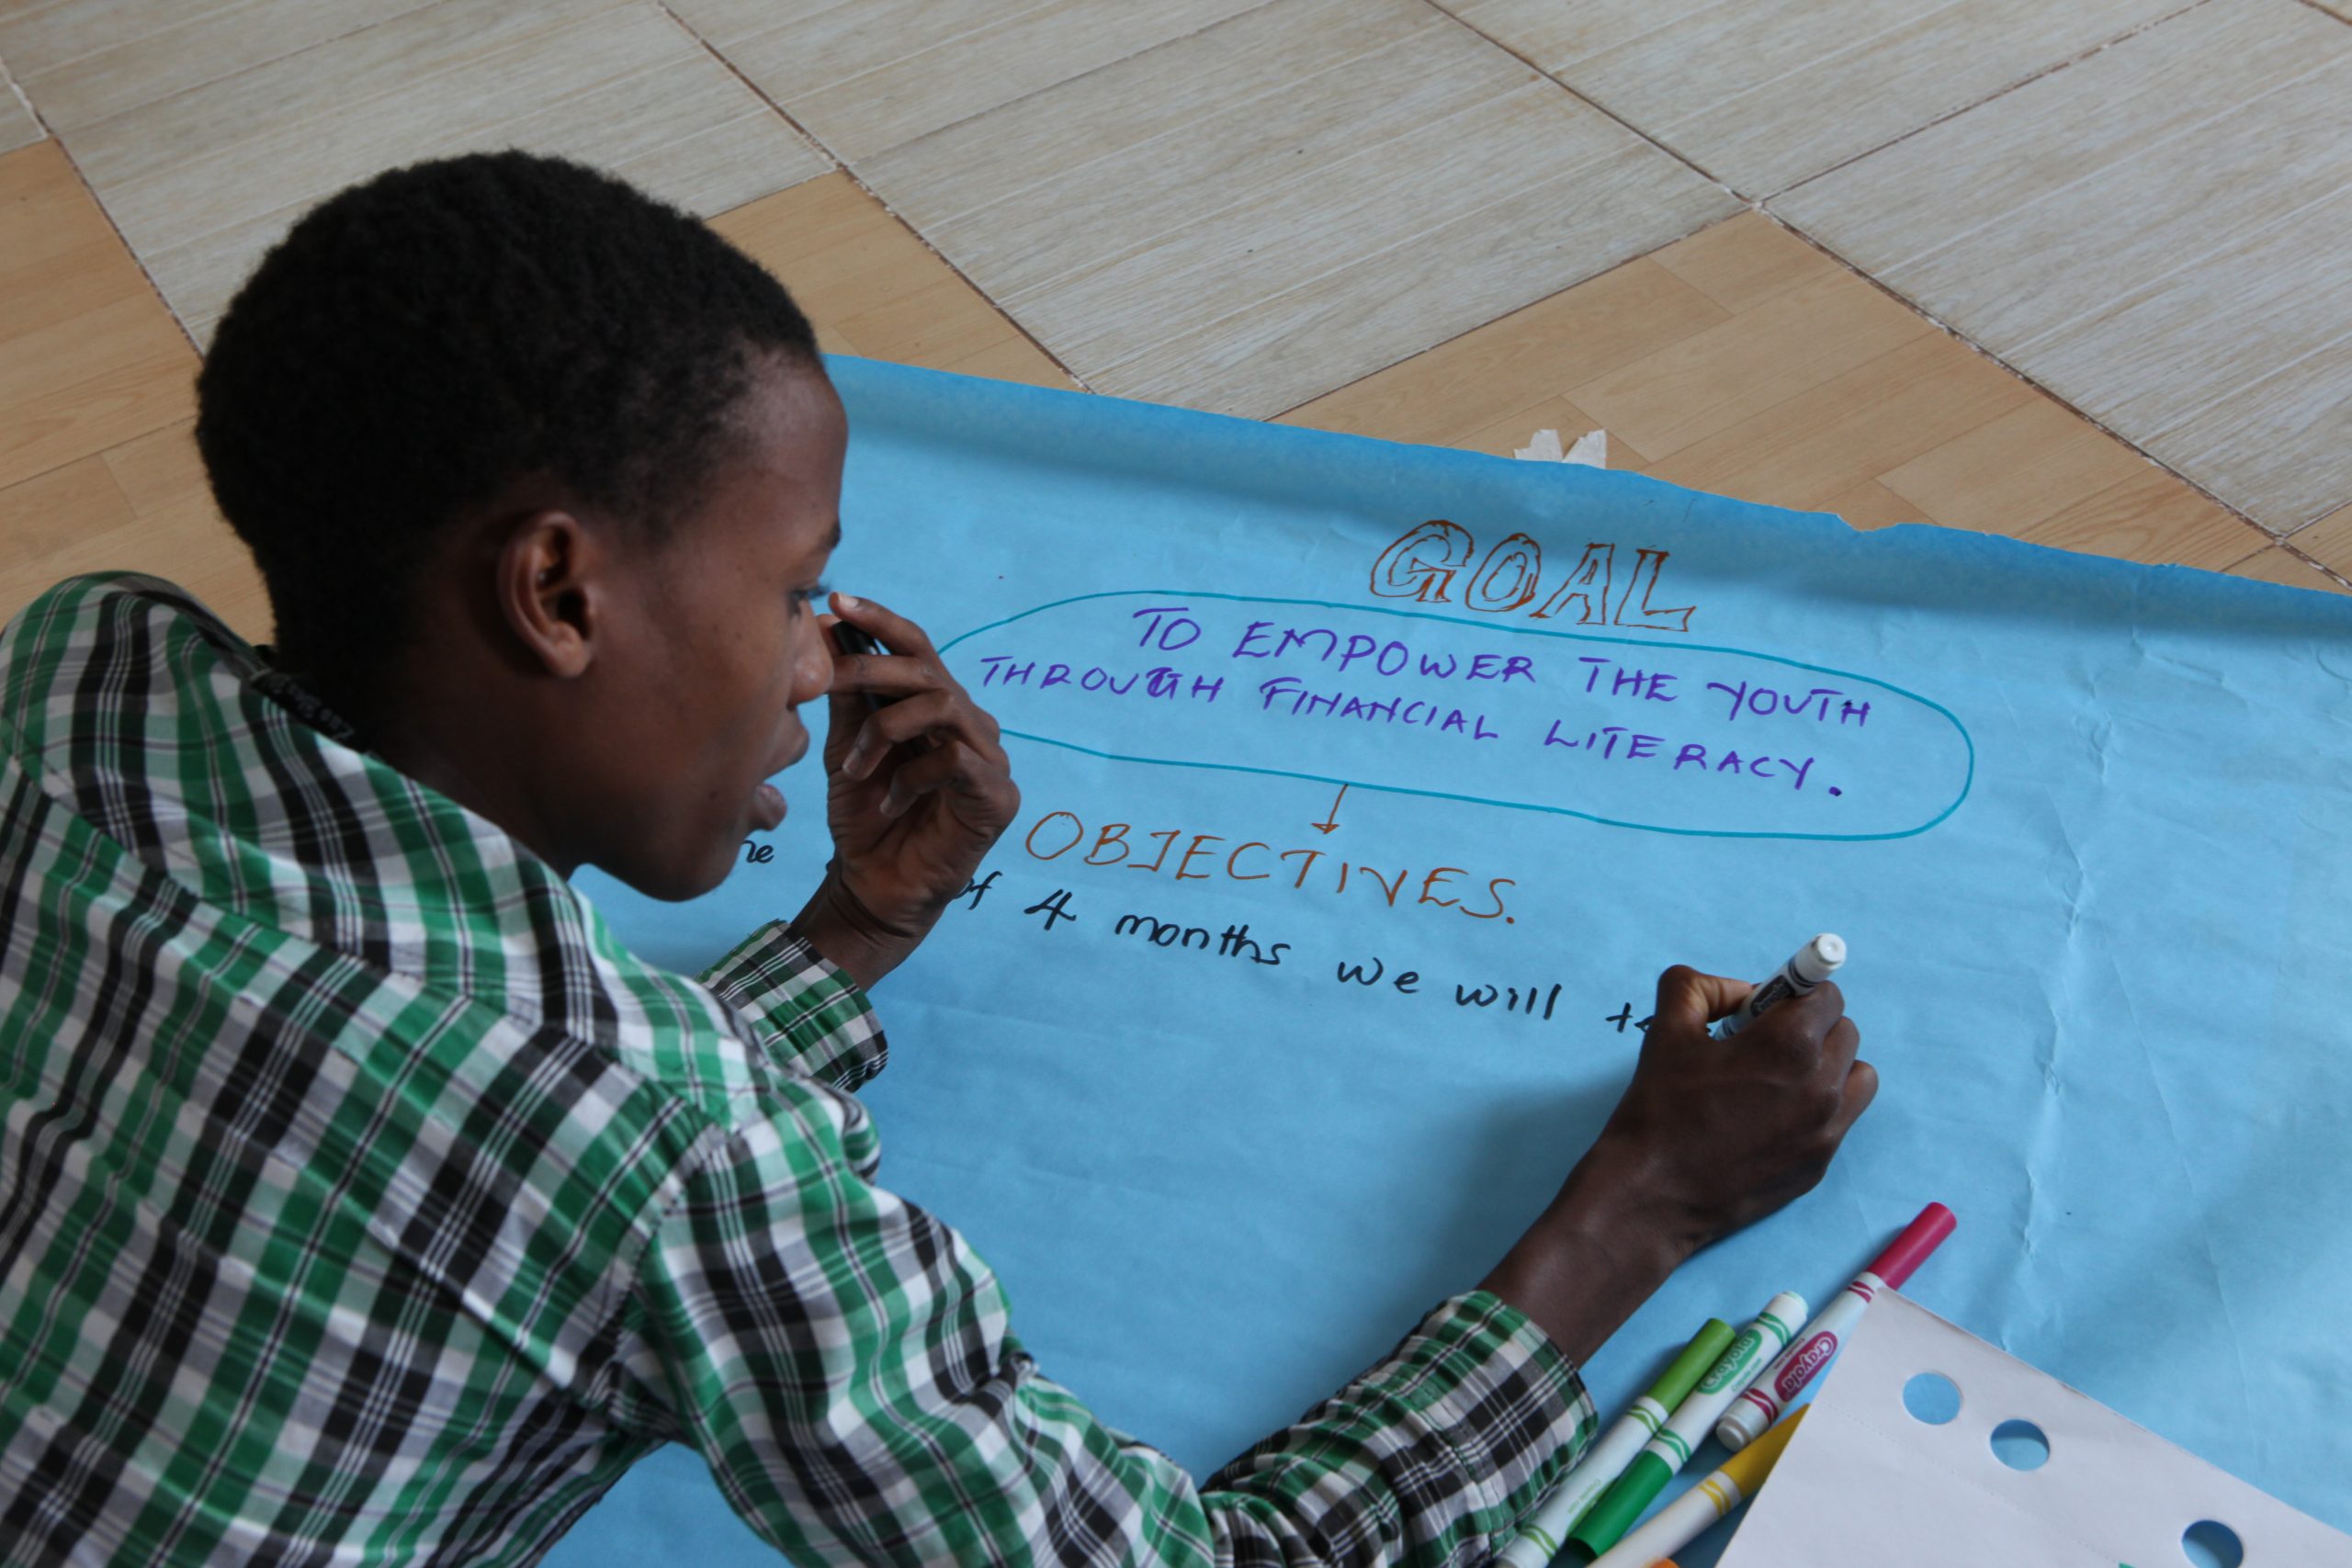 GOAL
TO EMPOWER THE YOUTH
THROUGH FINANCIAL LITERACY.
OBJECTIVES.
of 4 months we will
Crayola